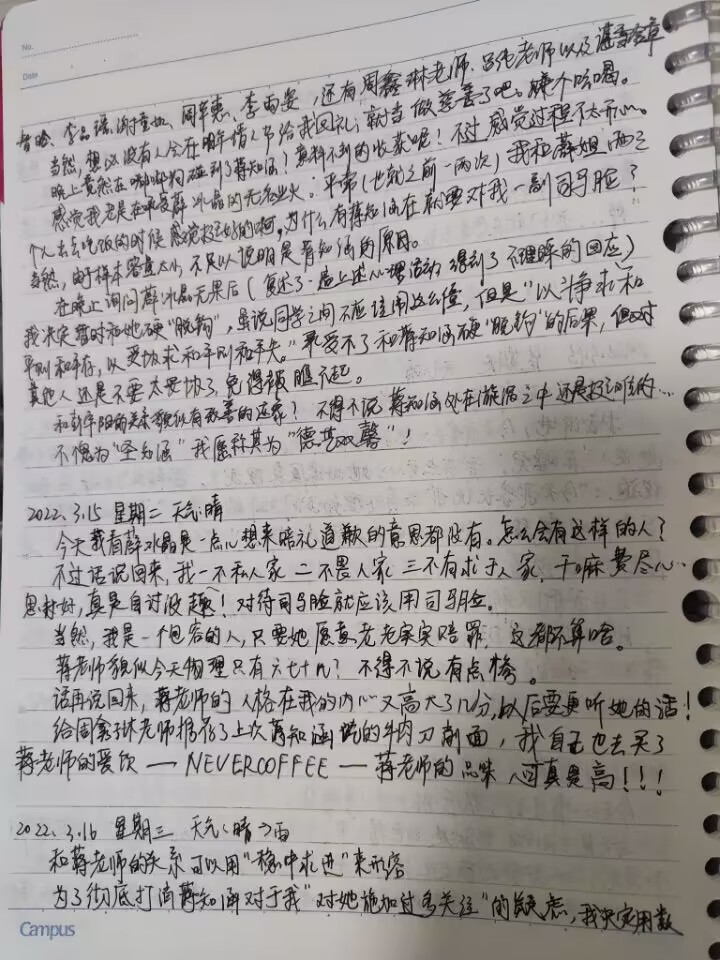 No.
Date
李品瑶、谢童灿、周军惠、李雨姿，还有周鑫琳老师、吕纯老师以及
当然，想必没有人会在明年情人节给我回礼，就当做慈善了吧。
晚上竟然在 碰到了蒋知涵？意料不到的收获呢！不过感觉过程不太开心。
感觉我老是在承受薛冰晶的无名业火。平常（也就之前一两次）我和薛姐两之
个人去吃饭的时候感觉挺好的啊，为什么有蒋知涵在就要对我一副司马脸？
当然，由于样本容量太小，不足以说明是蒋知涵的原因。
在晚上询问薛冰晶无果后（复述了一层上述心理活动得到了不理睬的回应）
我决定暂时和她硬“脱钩”，虽说同学之间不应该用这么僵，但是“以斗争求和
平则和平存，以妥协求和平则和平失。”承受不了和蒋知涵硬“脱钩”的后果，但对
其他人还是不要太妥协了，免得被瞧不起。
和彭宇阳的关系貌似有改善的迹象？不得不说蒋知涵处在漩涡之中还是挺难的…
不愧为“圣知涵”我愿称其为“德艺双馨”！
2022.3.15 星期二 天气：晴
今天我看薛冰晶是一点儿想来赔礼道歉的意思都没有。怎么会有这样的人？
不过话说回来，我一不私人家 二不畏人家 三不有求于人家，干嘛费尽心
思讨好，真是自讨没趣！对待司马脸就应该用司马脸。
当然，我是一个包容的人，只要她愿意老老实实赔罪，这都不算啥。
蒋老师貌似今天物理只有六七十几？不得不说有点惨。
话再说回来，蒋老师的人格在我的内心又高大了几分，以后要更听她的话！
给周鑫琳老师推荐了上次蒋知涵 的牛肉刀削面，我自己也去买了
蒋老师的爱饮 — NEVERCOFFEE — 蒋老师的品味可真是高！！！
2022.3.16 星期三 天气：晴→雨
和蒋老师的关系可以用“稳中求进”来形容
为了彻底打消蒋知涵对于我“对她施加过多关注”的疑虑，我决定用数
Campus